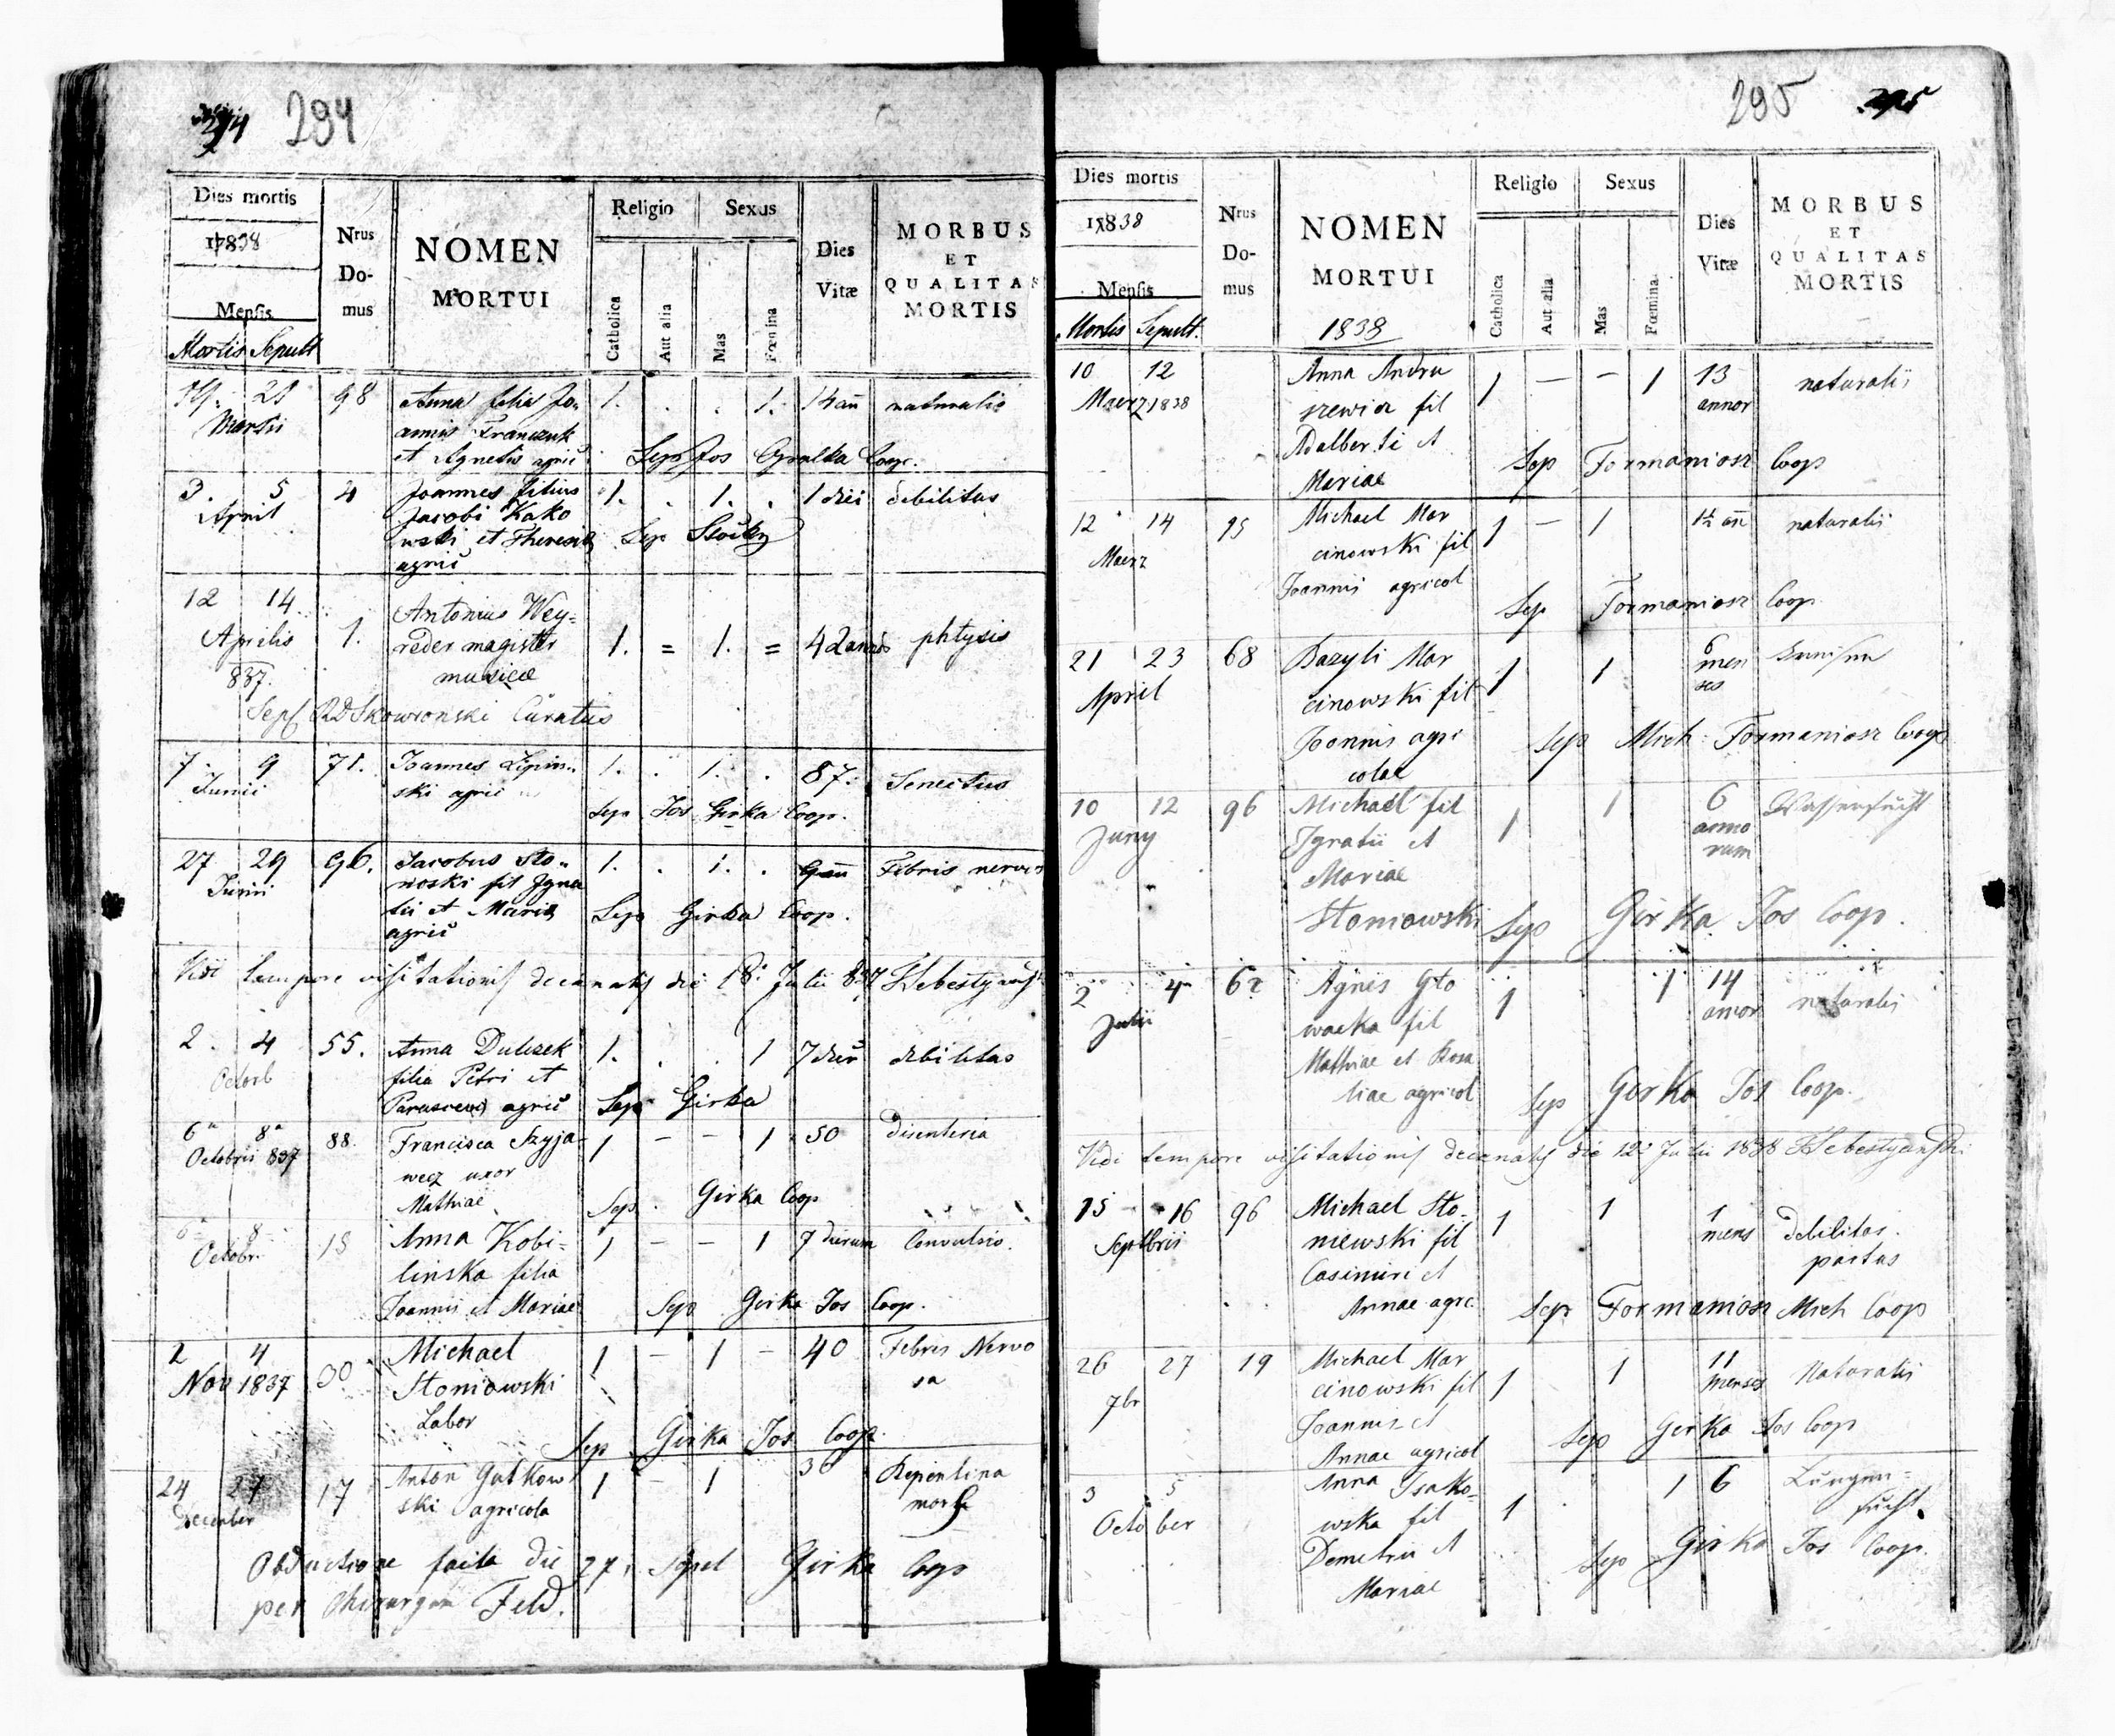 294
Dies mortis
1838
Mensis
Mortis Sepult
Nrus
Do-
mus
NOMEN
MORTUI
Religio
Catholica
Aut alia
Sexus
Mas
Fœmina
Dies
Vitæ
MORBUS
ET
QUALITAS
MORTIS
21 98 Anna filia Jo- 1. . . 1. naturalis
Martii annis Franczuk
et Agnetis agric Sep Jos Coop.
3. 5 4 Joannes filius 1. . 1. . 1 diei debilitas
April Jacobi Kako
wski et Theresiæ Sep
agric
12 14 1. Antonius Wey-
Aprilis reder magister 1. = 1. = 42 annos phtysis
837. musicæ
Sept RD Skowronski Curatus
7. 9 71. Joannes Lipin- 1. . 1. . 87. Senectus
Junii ski agric Sep Jos Girka Coop.
27 29 96. Jacobus Sto- 1. . 1. . 9 an Febris nervos
Junii nioski fil Igna
tii et Mariæ Sep Girka Coop.
agric
Vidi tempore visitationis decanatis die 18. Julii 837
2. 4 55. Anna Dulczek 1. . . 1 7 dier debilitas
Octorb filia Petri et
agric Sep Girka
6a 8a 88. Francisca Szyja- 1 – – 1 50 disenteria
Octobris 837 wecz uxor
Mathiae Sep Girka Coop
6a 8 Anna Kobi- 1 – – 1 7 dierum Convulsio.
Octobr linska filia
Joannis et Mariae Sep Girka Jos Coop.
2 4 30 Michael 1 – 1 – 40 Febris Nervo
Nov 1837 Stoniowski sa
Labor
Sep Girka Jos Coop.
24 27 17 Anton Gutkow 1 – 1 36 Repentina
December ski agricola mors
Obductione facta die 27, Sepel Girka Coop
per Chirurgum Feld.
295
Dies mortis
1838
Mensis
Mortis Sepult.
Nrus
Do-
mus
NOMEN
MORTUI
1838
Religio
Catholica
Aut alia
Sexus
Mas
Fœmina
Dies
Vitæ
MORBUS
ET
QUALITAS
MORTIS
10 12 Anna Andru 1 – – 1 13 naturalis
Maerz 1838 szewicz fil annor
Adalberti et
Mariae Sep Formaniosz Coop
12 14 Michael Mar 1 – 1 1½ an naturalis
Maerz cinowski fil
Joannis agricol
Sep Formaniosz Coop
21 23 68 Bazyli Mar 1 1 6
April cinowski fil menses
Joannis agri Sep Mich: Formaniosz Coop
colae
10 12 96 Michael fil 1 1 6 Wassersucht
Juny Ignatii et annorum
Mariae
Stoniowski Sep Girka Jos Coop.
2 4 62 Agnes Gło 1 1 14 naturalis
Julii wacka fil annor
Mathiae et Rosa
liae agricol Sep Girka Jos Coop.
Vidi tempore visitationis decanatis die 12 Julii 1838
15 16 96 Michael Sto- 1 1 1 debilitas
Septbris niewski fil mens partus
Casimiri et
Annae agric. Sep Formaniosz Mich Coop
26 27 19 Michael Mar 1 1 11 Naturalis
7br cinowski fil menses
Joannis et
Annae agricol Sep Girka Jos Coop
3 5 Anna Isako- 1 1 6 Lungen-
October wska fil sucht
Demetrii et Sep Girka Jos Coop.
Mariae